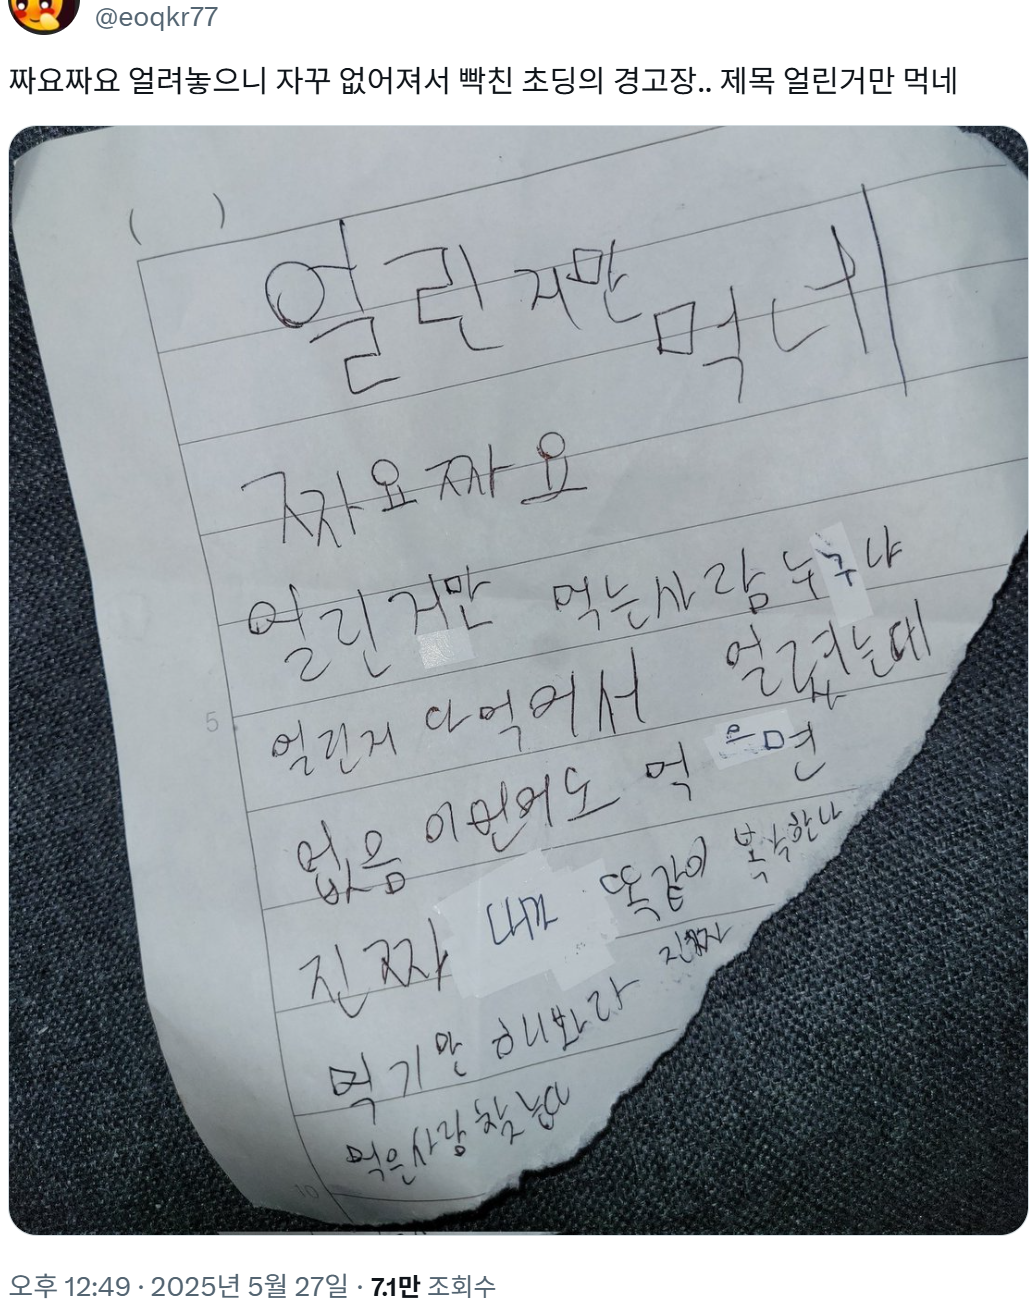 @eoqkr77
짜요짜요 얼려놓으니 자꾸 없어져서 빡친 초딩의 경고장.. 제목 얼린거만 먹네
( )
얼린거만 먹네
짜요짜요
얼린거만 먹는사람 누구냐
5
얼린거 다 먹어서 얼렸는데
없음 이번에도 먹으면
진짜 내가 똑같이 복수한다
먹기만 해봐라 진짜
먹은사람 찾는다
10
오후 12:49 · 2025년 5월 27일 · 7.1만 조회수